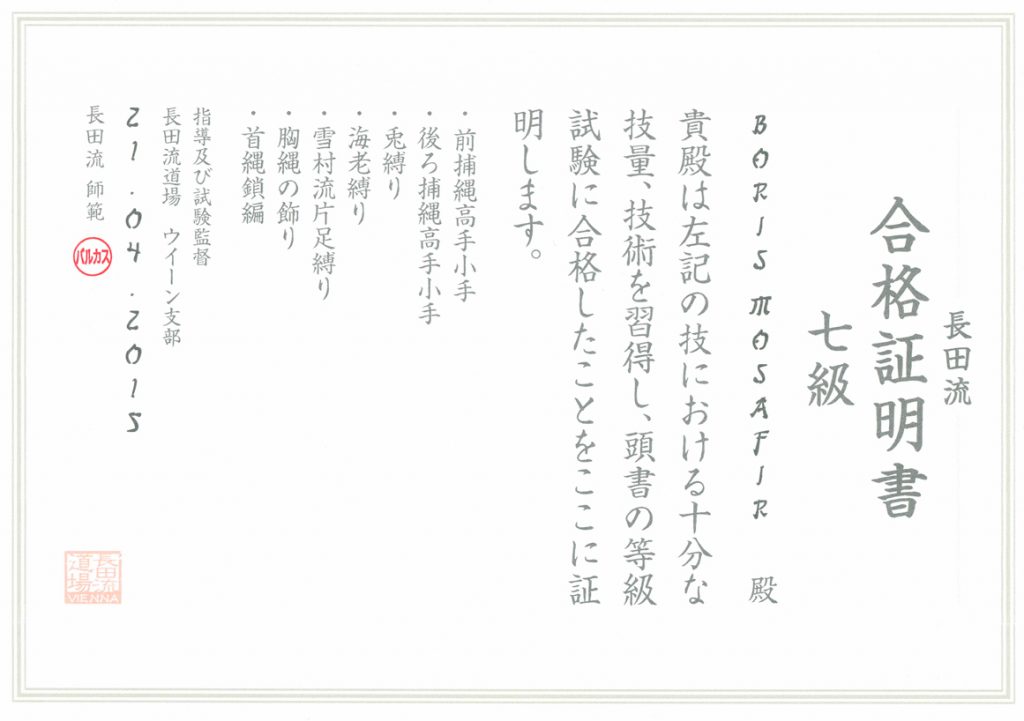 長田流
合格証明書
七級
BORIS MOSAFIR 殿
貴殿は左記の技における十分な
技量、技術を習得し、頭書の等級
試験に合格したことをここに証
明します。
・前捕縄高手小手
・後ろ捕縄高手小手
・兎縛り
・海老縛り
・雪村流片足縛り
・胸縄の飾り
・首縄鎖編
指導及び試験監督
長田流道場 ウイーン支部
21.04.2015
長田流 師範
バルカス
長田流
道場
VIENNA